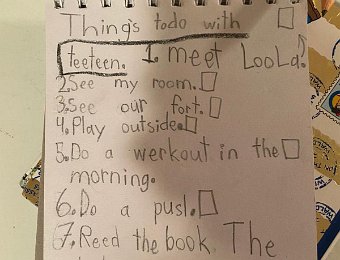 Things todo with
teeteen. 1. meet LooLa.
2. See my room.
3. See our fort.
4. Play outside.
5. Do a werkout in the
morning.
6. Do a pusl.
7. Reed the book The